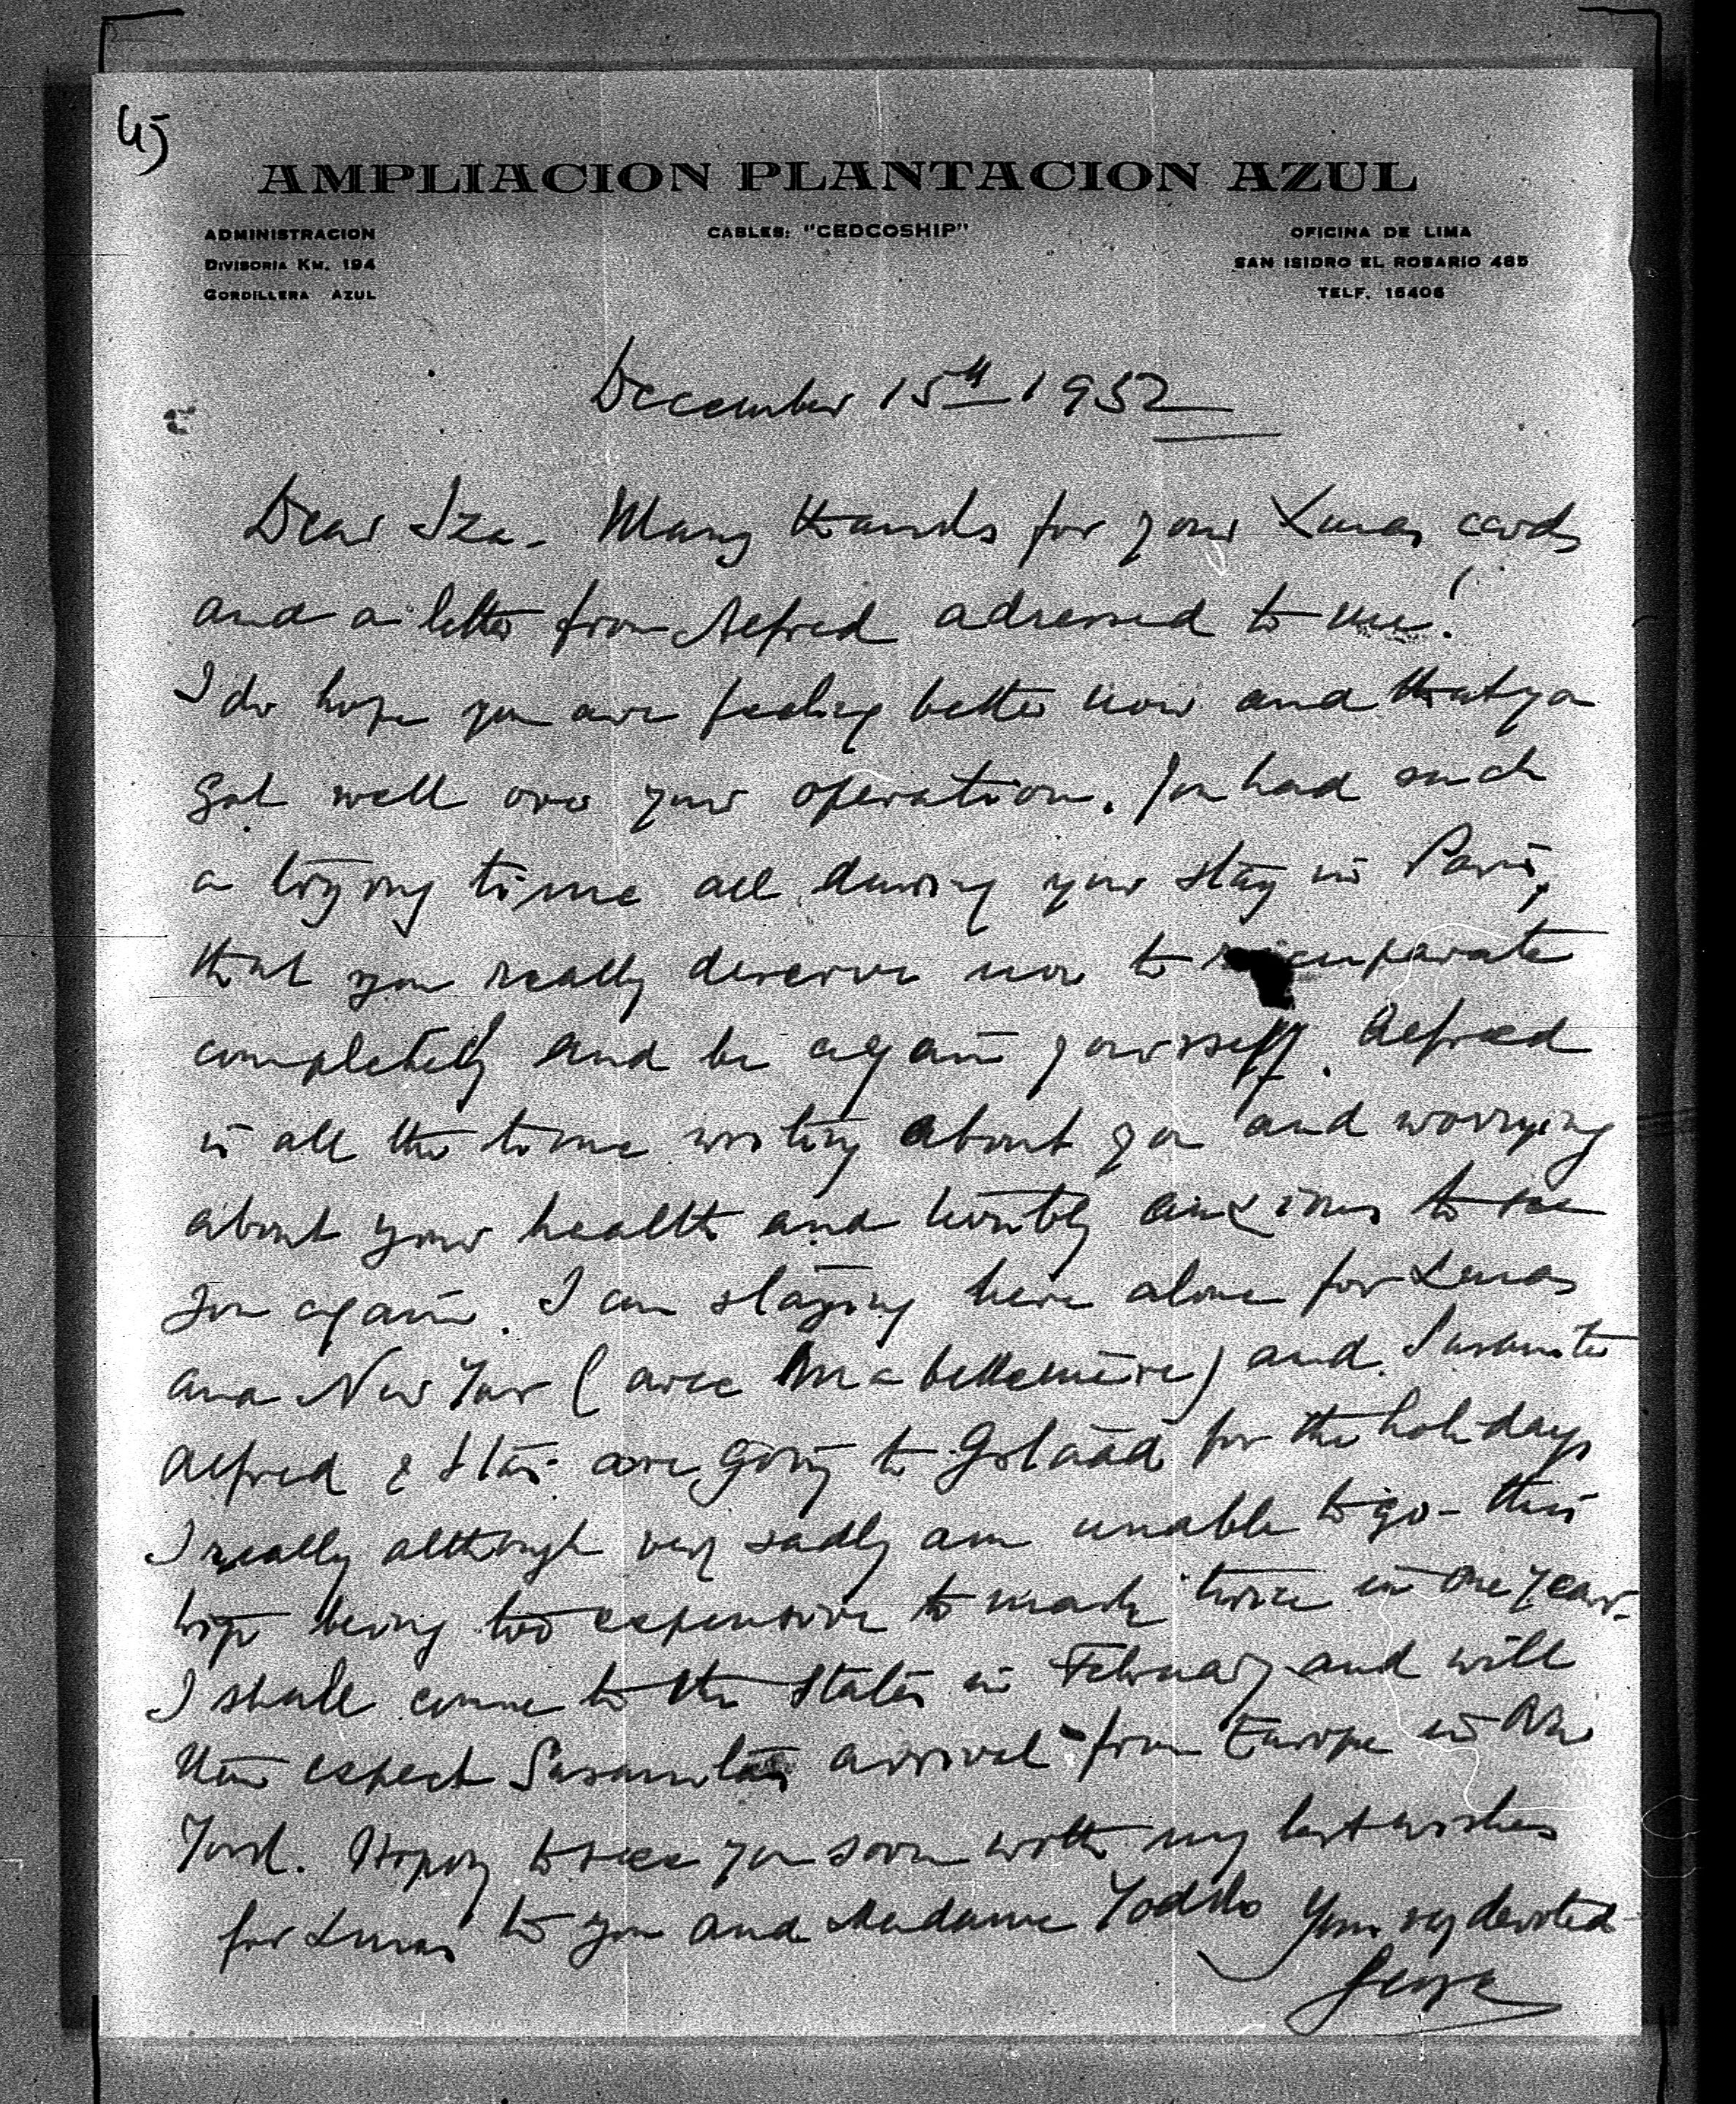 45
AMPLIACION PLANTACION AZUL
ADMINISTRACION
DIVISORIA KM. 194
CORDILLERA AZUL
CABLES: "CEDCOSHIP"
OFICINA DE LIMA
SAN ISIDRO EL ROSARIO 485
TELF. 15406
December 15th 1952
Dear Iza. Many thanks for your Xmas cards
and a letter from Alfred adressed to me!
I do hope you are feeling better now and that you
got well over your operation. You had such
a trying time all during your stay in Paris,
that you really deserve now to recuparate
completely and be again yourself. Alfred
is all the time writing about you and worrying
about your health and terribly anxious to see
you again. I am staying here alone for Xmas
and New Year (avec ma bellemère) and Susanita
Alfred & are going to for the holidays
I really although very sadly am unable to go - this
trip being too expensive to made twice in one year.
I shall come to the States in February and will
then expect Susanitas arrival from Europe in New
York. Hoping to see you soon with my best wishes
for Xmas to you and Madame Yours very devoted
George